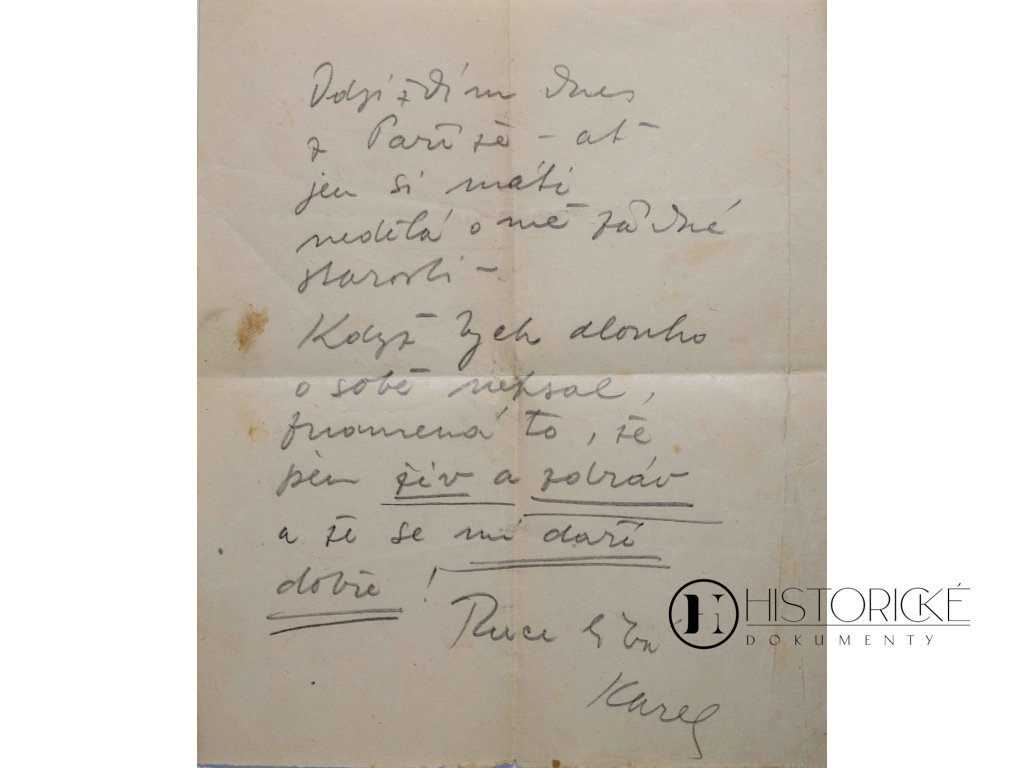 Odjíždím dnes
z Paříže – ať
jen si máti
nedělá o mě žádné
starosti –
Když bych dlouho
o sobě nepsal,
znamená to, že
jsem živ a zdráv
a že se mi daří
dobře!
Ruce líbá
Karel
HISTORICKÉ
DOKUMENTY